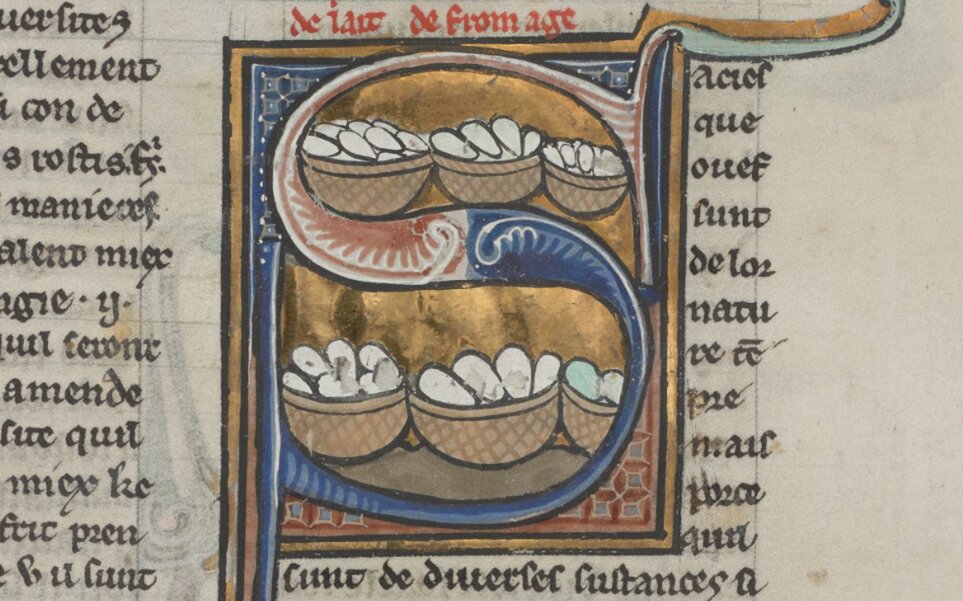 uersites
ellement
con de
s rostis
manieres
alent miex
ugie · ij ·
quil seront
amende
site quil
miex ke
frit pren
il sunt
de lait de fromage
S
acies
que
ouef
sunt
de lor
natu
re tē
pre
mais
porce
quil
sunt de diuerses sustances si